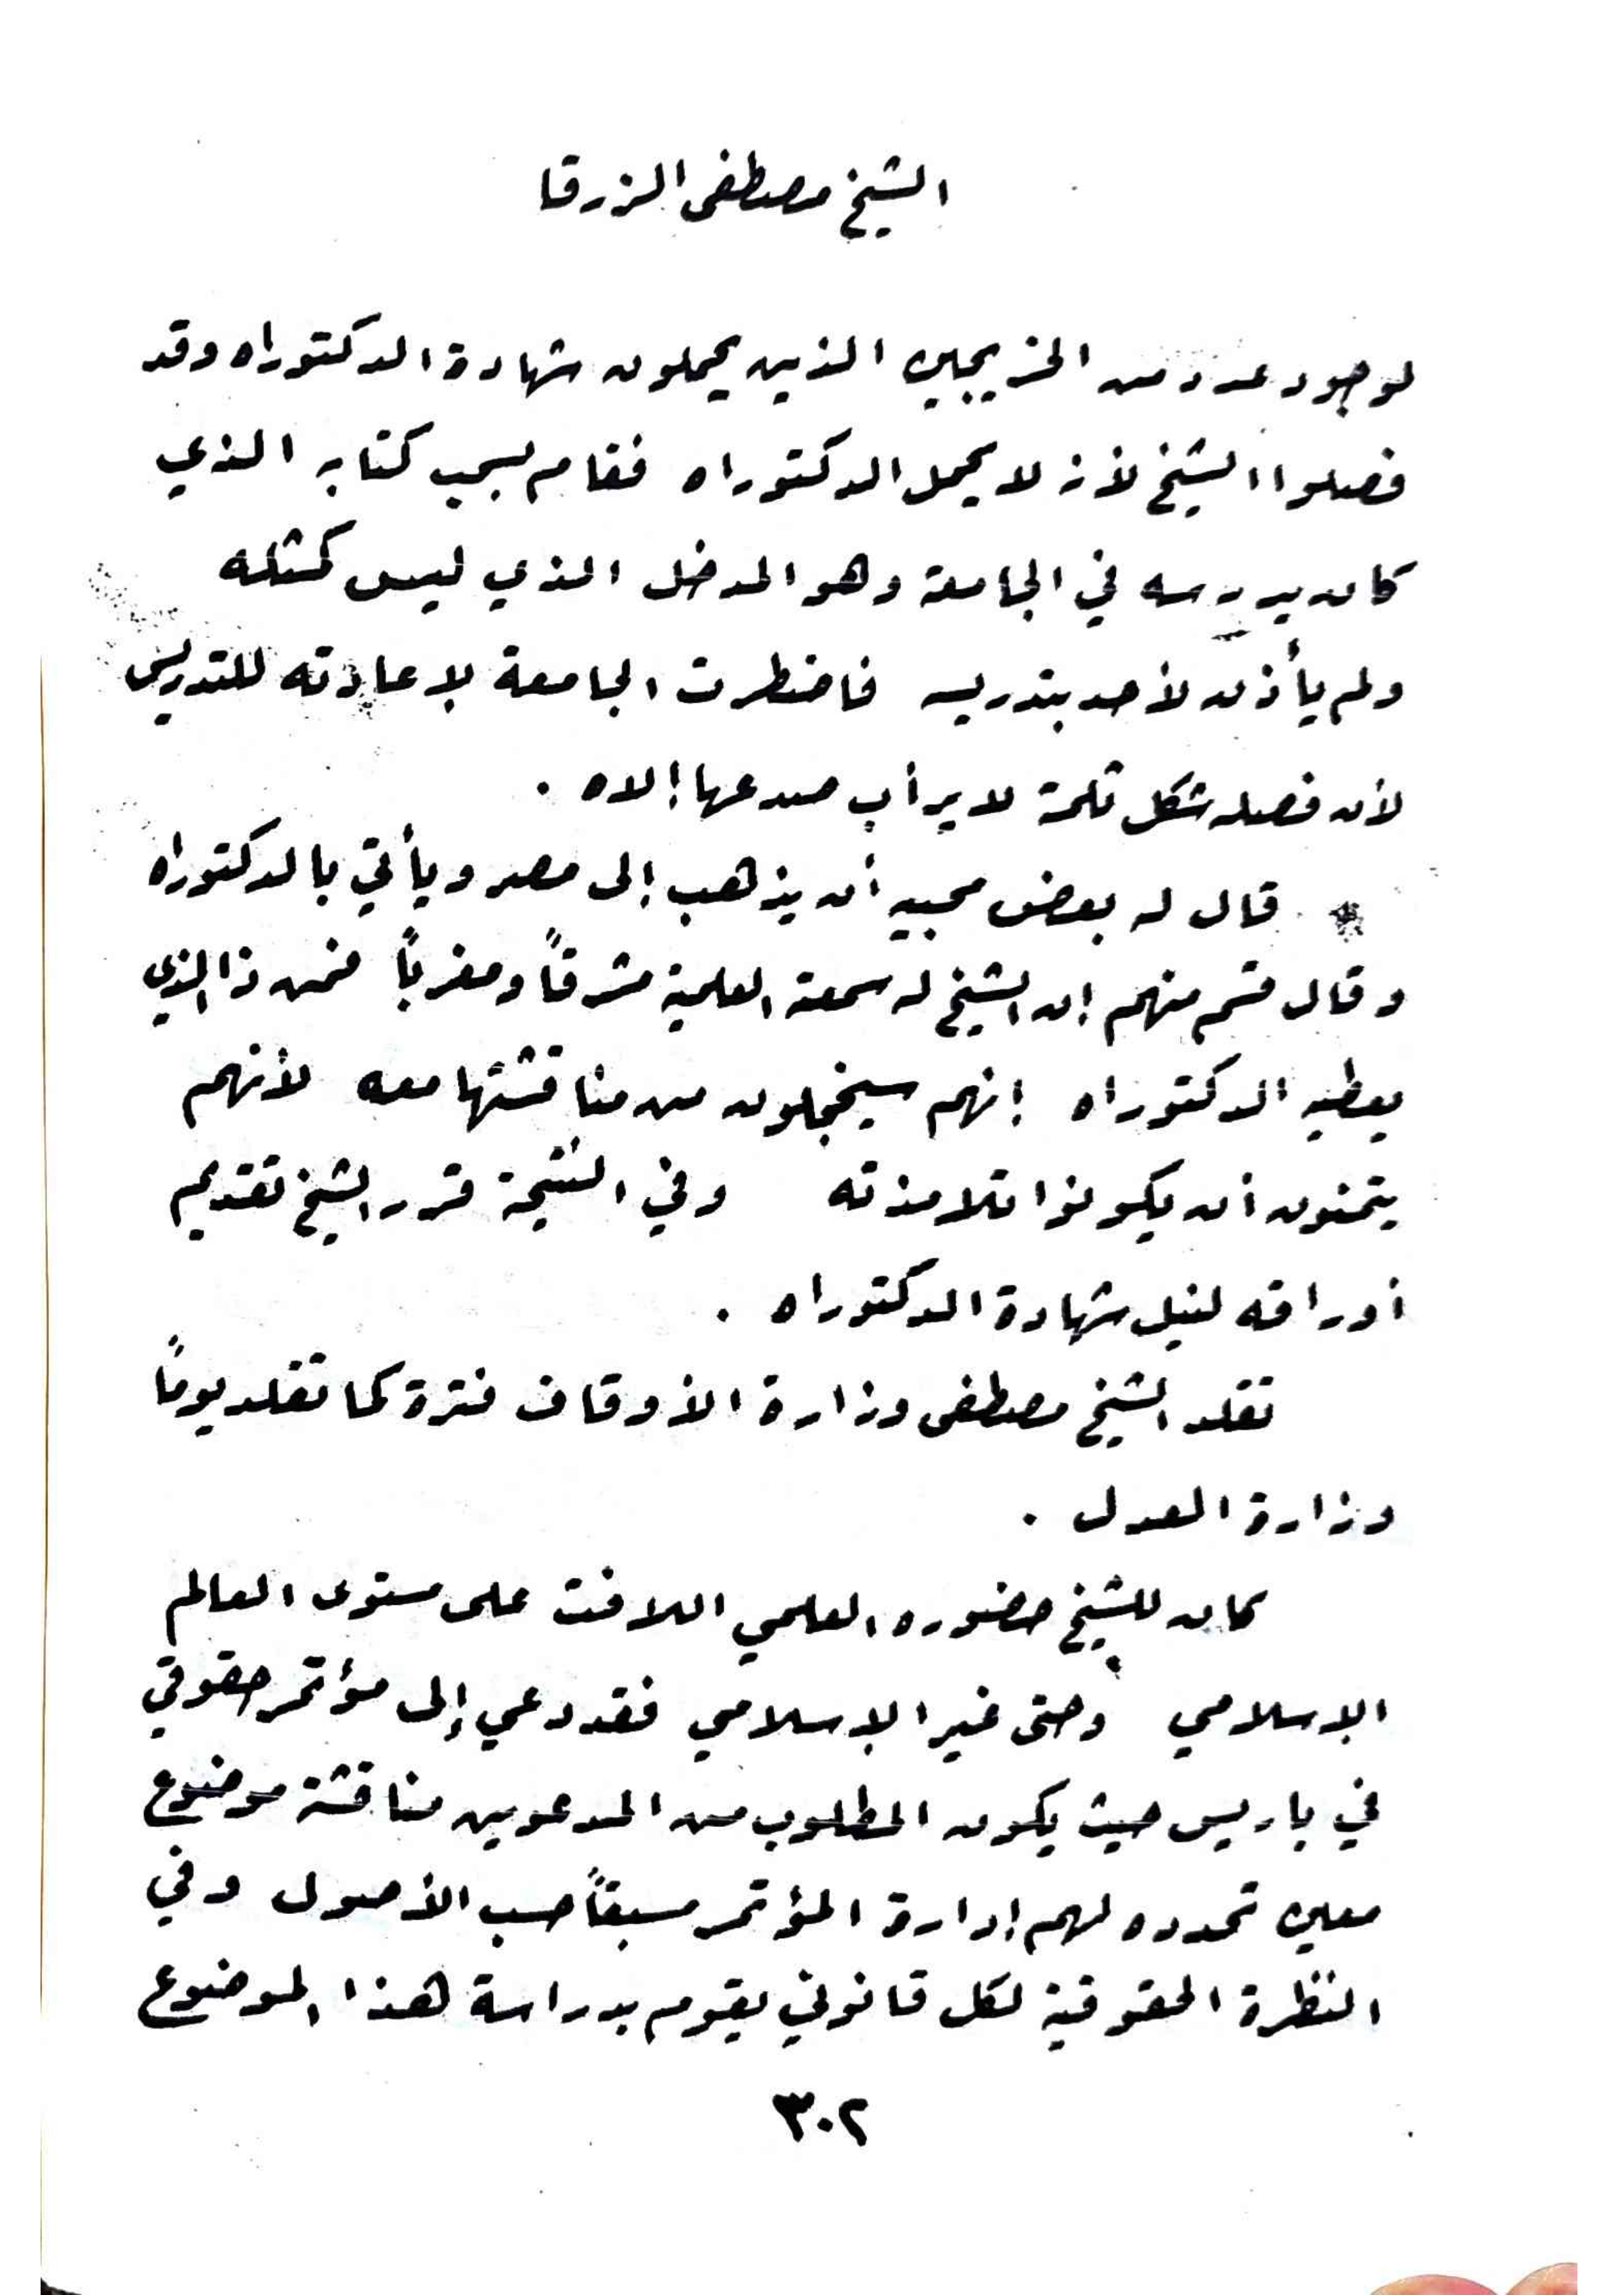 الشيخ مصطفى الزرقا
لوجود عدد من الخريجين الذين يحملون شهادة الدكتوراه وقد
فصلوا الشيخ لأنه لا يحمل الدكتوراه فقام بسحب كتابه الذي
كان يدرسه في الجامعة وهو المدخل الذي ليس كمثله
ولم يأذن لأحد بتدريسه فاضطرت الجامعة لإعادته للتدريس
لأن فصله شكل ثلمة لا يرأب صدعها إلاه .
قال له بعض محبيه أن يذهب إلى مصر ويأتي بالدكتوراه
وقال قسم منهم إن الشيخ له سمعته العلمية مشرقاً ومغرباً فمن ذا الذي
يعطيه الدكتوراه إنهم سيخجلون من مناقشتها معه لأنهم
يتمنون أن يكونوا تلامذته وفي النتيجة قرر الشيخ تقديم
أوراقه لنيل شهادة الدكتوراه .
تقلد الشيخ مصطفى وزارة الأوقاف فترة كما تقلد يوماً
وزارة العدل .
كان للشيخ حضوره العلمي اللافت على مستوى العالم
الإسلامي وحتى غير الإسلامي فقد دعي إلى مؤتمر حقوقي
في باريس حيث يكون المطلوب من المدعوين مناقشة موضوع
معين تحدده لهم إدارة المؤتمر مسبقاً حسب الأصول وفي
النظرة الحقوقية لكل قانوني يقوم بدراسة هذا الموضوع
٣٠٢